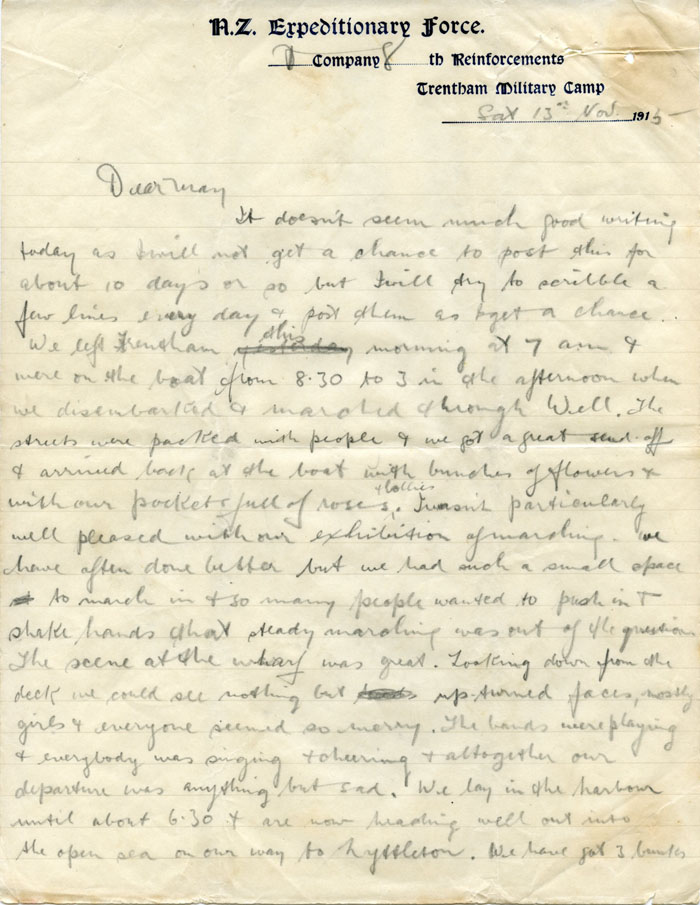 N.Z. Expeditionary Force.
D Company 8 th Reinforcements
Trentham Military Camp
Sat 13th Nov. 1915
Dear May
It doesn't seem much good writing
today as I will not get a chance to post this for
about 10 days or so but I will try to scribble a
few lines every day & post them as I get a chance.
We left Trentham yesterday this morning at 7 a.m. &
were on the boat from 8.30 to 3 in the afternoon when
we disembarked & marched through Well. The
streets were packed with people & we got a great send-off
& arrived back at the boat with bunches of flowers &
with our pockets full of roses & lollies. I wasn't particularly
well pleased with our exhibition of marching. We
have often done better but we had such a small space
to march in & so many people wanted to push in &
shake hands that steady marching was out of the question
The scene at the wharf was great. Looking down from the
deck we could see nothing but upturned faces, mostly
girls & everyone seemed so merry. The bands were playing
& everybody was singing & cheering & altogether our
departure was anything but sad. We lay in the harbour
until about 6.30 & are now heading well out into
the open sea on our way to Lyttleton. We have got 3 bunks